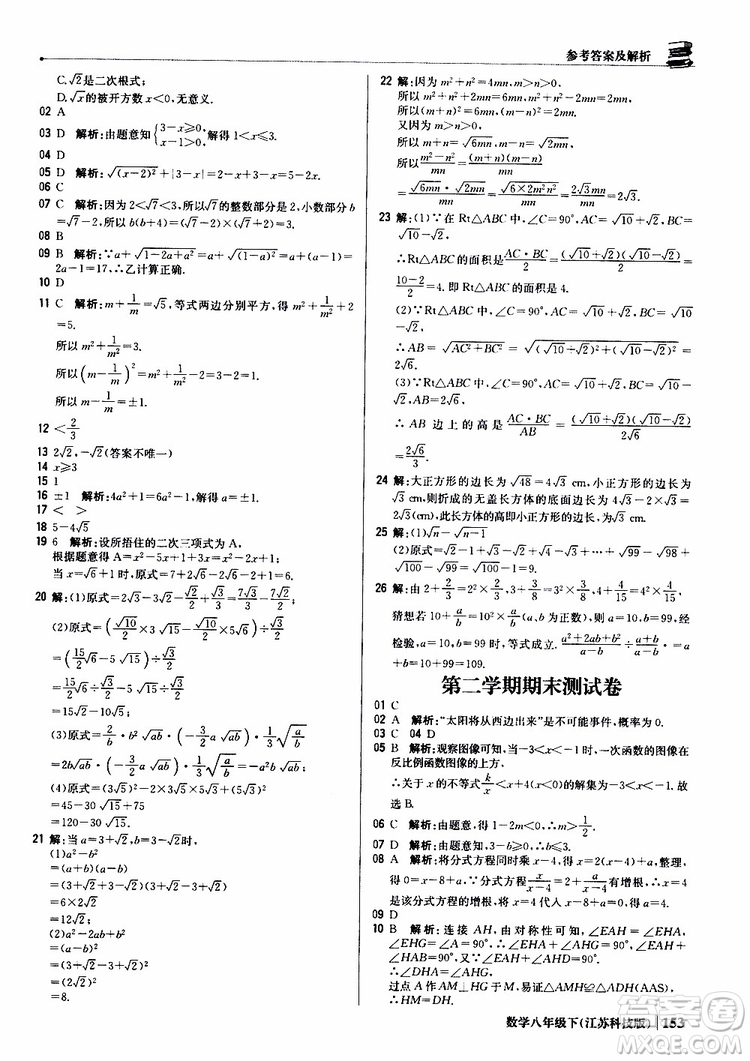 参考答案及解析
C.√2是二次根式;
D.√x的被开方数x<0,无意义.
02 A
03 D 解析:由题意知{3-x≥0, x-1>0, 解得1<x≤3.
04 D
05 D 解析:√(x-2)²+|3-x|=x-2+3-x=x-3+x-2=2x-5.
06 C
07 C 解析:因为2<√7<3,所以√7的整数部分是2,小数部分是√7-2,所以b(b+4)=(√7-2)(√7+2)=7-4=3.
08 B
09 B 解析:∵a+√(1-2a+a²)=a+√(1-a)²=a+a-1=2a-1=17,∴乙计算正确.
10 D
11 C 解析:m+1/m=√5,等式两边分别平方,得m²+1/m²+2
=5.
所以m²+1/m²=3.
所以(m-1/m)²=m²+1/m²-2=3-2=1.
所以m-1/m=±1.
12 <2/3
13 2√2,-√2(答案不唯一)
14 x≥3
15 1
16 ±1 解析:4a²+1=7-a²,解得a=±1.
17 < >
18 5-4√5
19 6 解析:设所捂住的二次三项式为A,
根据题意得A=x²-5x+1+3x=x²-2x+1.
当x=√6+1时,原式=(x-1)²=6.
20 解:(1)原式=2√3-3√2-√2/2+√3=3√3-7√2/2.
(2)原式=(√10/2×3√15-√10/2×5√6)÷√3/2
=(15√6/2-5√15)÷√3/2
=15√6/2÷√3/2-5√15÷√3/2
=15√2-10√5.
(3)原式=2/b·a√ab·(-3/2)·1/3√(a/b)
=2b√ab·(-1/2√(a/b))
=-ab.
(4)原式=(3√5)²-2×3√5×5√3+(5√3)²
=45-30√15+75
=120-30√15.
21 解:当a=3+√2,b=3-√2时,
(1)a²-b²
=(a+b)(a-b)
=(3+√2+3-√2)(3+√2-3+√2)
=6×2√2
=12√2;
(2)a²-2ab+b²
=(a-b)²
=(3+√2-3+√2)²
=(2√2)²
=8.
22 解:因为m²+n²=4mn,m>n>0,
所以m²+n²+2mn=6mn,即(m+n)²=6mn.
又因为m>n>0,
所以m+n=√6mn,m-n=√2mn.
所以(m²-n²)/mn=(m+n)(m-n)/mn=
(√6mn·√2mn)/mn=√(6×2m²n²)/mn=2√3mn/mn=2√3.
23 解:(1)∵Rt△ABC中,∠C=90°,AC=√10+√2,BC=√10-√2,
∴Rt△ABC的面积是AC·BC/2=(√10+√2)(√10-√2)/2=
(10-2)/2=4.即Rt△ABC的面积是4.
(2)∵Rt△ABC中,∠C=90°,AC=√10+√2,BC=√10-√2,
∴AB=√(AC²+BC²)=√((√10+√2)²+(√10-√2)²)=
2√6.
(3)∵Rt△ABC中,∠C=90°,AC=√10+√2,BC=√10-√2,AB=2√6,
∴AB边上的高是AC·BC/AB=(√10+√2)(√10-√2)/2√6
=2√6/3.
24 解:大正方形的边长为√48=4√3 cm,小正方形的边长为√3 cm,则折成的无盖长方体的底面边长为4√3-2√3=2√3 cm,此长方体的高即小正方形的边长为√3 cm.
25 解:(1)√n-√n-1
(2)原式=√2-1+√3-√2+2-√3+…+√100-√99=√100-1=9.
26 解:由2+2/3=2²×2/3;3+3/8=3²×3/8;4+4/15=4²×4/15,
猜想若10+a/b=10²×a/b(a、b为正数),则a=10,b=99,经检验,a=10,b=99时,等式成立.(a²+2ab+b²)/b÷(a+b)/b=a+b=10+99=109.
第二学期期末测试卷
01 C
02 A 解析:“太阳将从西边出来”是不可能事件,概率为0.
03 C 04 D
05 B 解析:观察图像可知,当-3<x<-1时,一次函数的图像在反比例函数图像的上方,
∴关于x的不等式k/x<x+4(x<0)的解集为-3<x<-1.故选B.
06 C 解析:由题意,得1-2m<0,∴m>1/2.
07 D 解析:由题意知,-3-a≥0,∴a≤-3.
08 A 解析:将分式方程同时乘x-4,去分母,整理,得x+a=0,∵分式方程x/(x-4)+a/(x-4)=0有增根,∴x=4是该分式方程的增根,将x=4代入x+a=0,得a=-4.
09 D
10 B 解析:连接AH,由对称性可知,∠EAH=∠EHA,∠EHG=∠A=90°,∴∠EAH+∠HAD=∠EHA+∠AHG=90°,∴∠HAD=∠AHG,∵AD∥BC,∴∠DAH=∠AHB,∴∠DHA=∠AHG.
过点A作AM⊥HG于M,易证△AHM≌△AHD(AAS),∴HM=DH.
数学八年级下(江苏科技版) 153